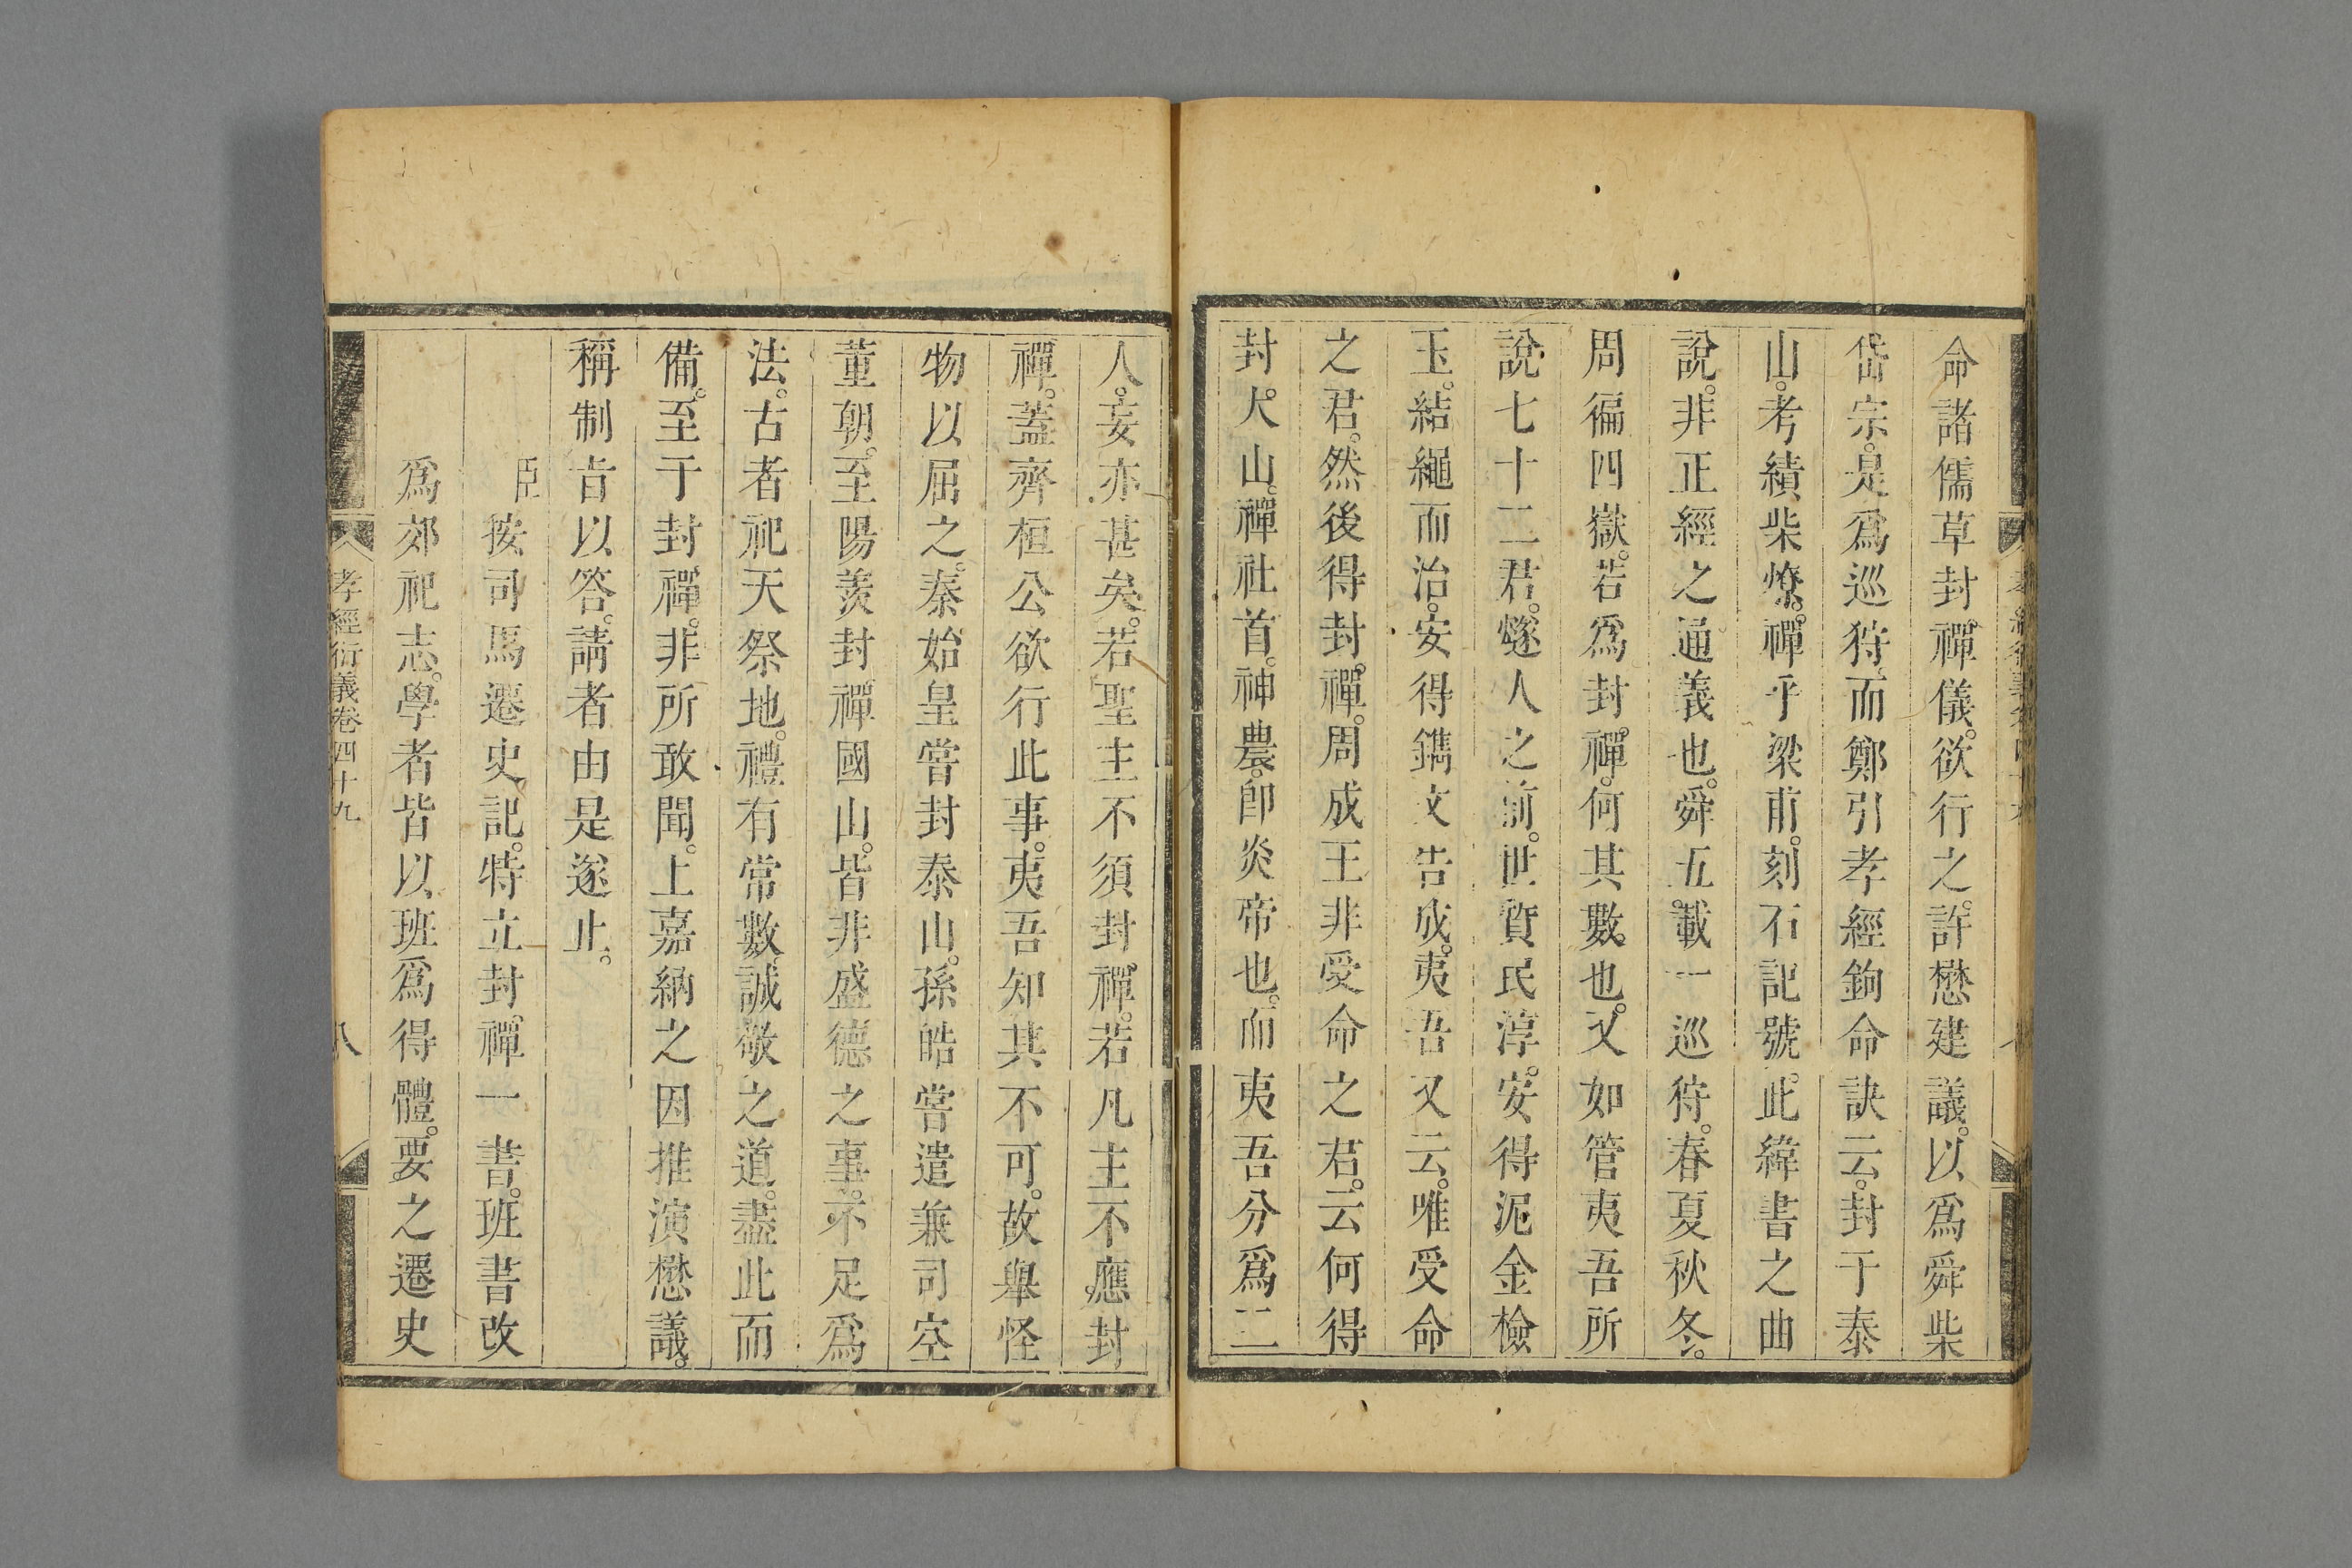 命諸儒草封禪儀。欲行之。許懋建議。以爲舜柴
岱宗。是爲巡狩。而鄭引孝經鉤命訣云。封于泰
山。考績柴燎。禪乎梁甫。刻石記號。此緯書之曲
說。非正經之通義也。舜五載一巡狩。春夏秋冬。
周徧四嶽。若爲封禪。何其數也。又如管夷吾所
說七十二君。燧人之前。世質民淳。安得泥金檢
玉。結繩而治。安得鐫文告成。夷吾又云。唯受命
之君。然後得封禪。周成王非受命之君。云何得
封大山。禪社首。神農。卽炎帝也。而夷吾分爲二
人。妄亦甚矣。若聖主不須封禪。若凡主不應封
禪。蓋齊桓公欲行此事。夷吾知其不可。故舉怪
物以屈之。秦始皇嘗封泰山。孫皓嘗遣兼司空
董朝。至陽羨封禪國山。皆非盛德之事。不足爲
法。古者祀天祭地。禮有常數。誠敬之道。盡此而
備。至于封禪。非所敢聞。上嘉納之。因推演懋議。
稱制㫖以答。請者由是遂止。
臣按司馬遷史記。特立封禪一書。班書改
爲郊祀志。學者皆以班爲得體。要之遷史
孝經衍義卷四十九
八